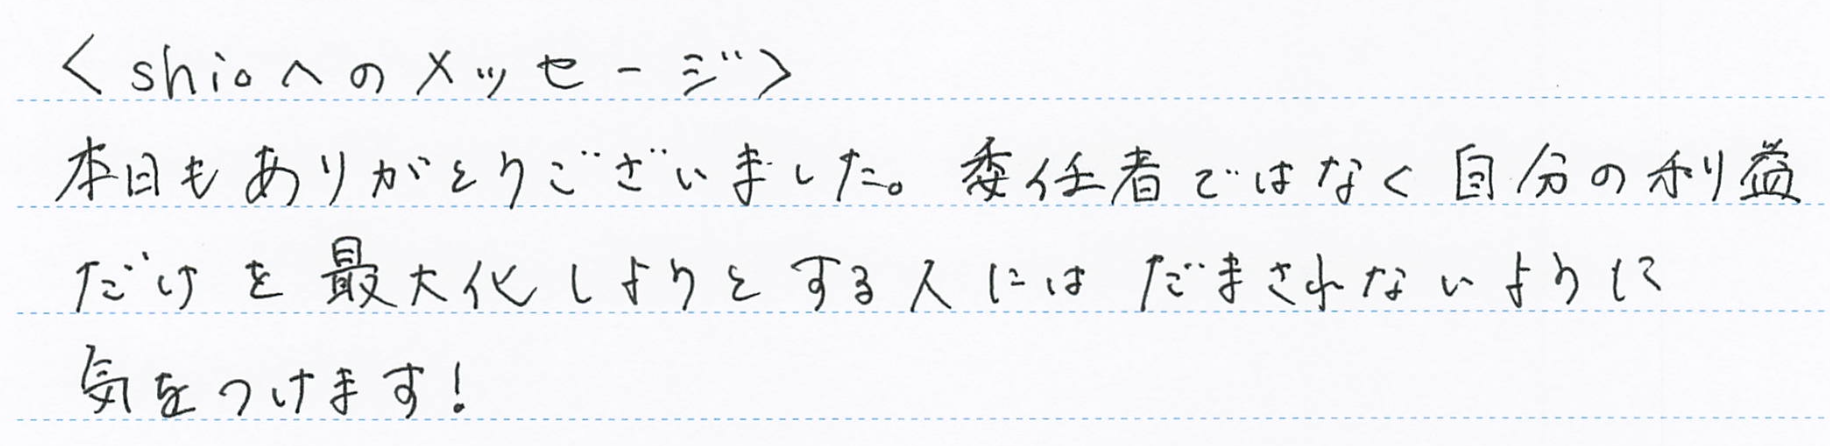 <shioへのメッセージ>
本日もありがとうございました。委任者ではなく自分の利益
だけを最大化しようとする人にはだまされないように
気をつけます!